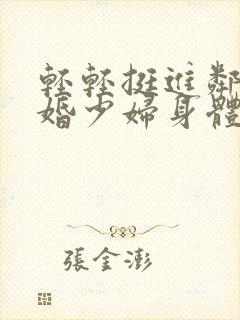 輕輕挺進鄰
婚少婦身體
張金澎